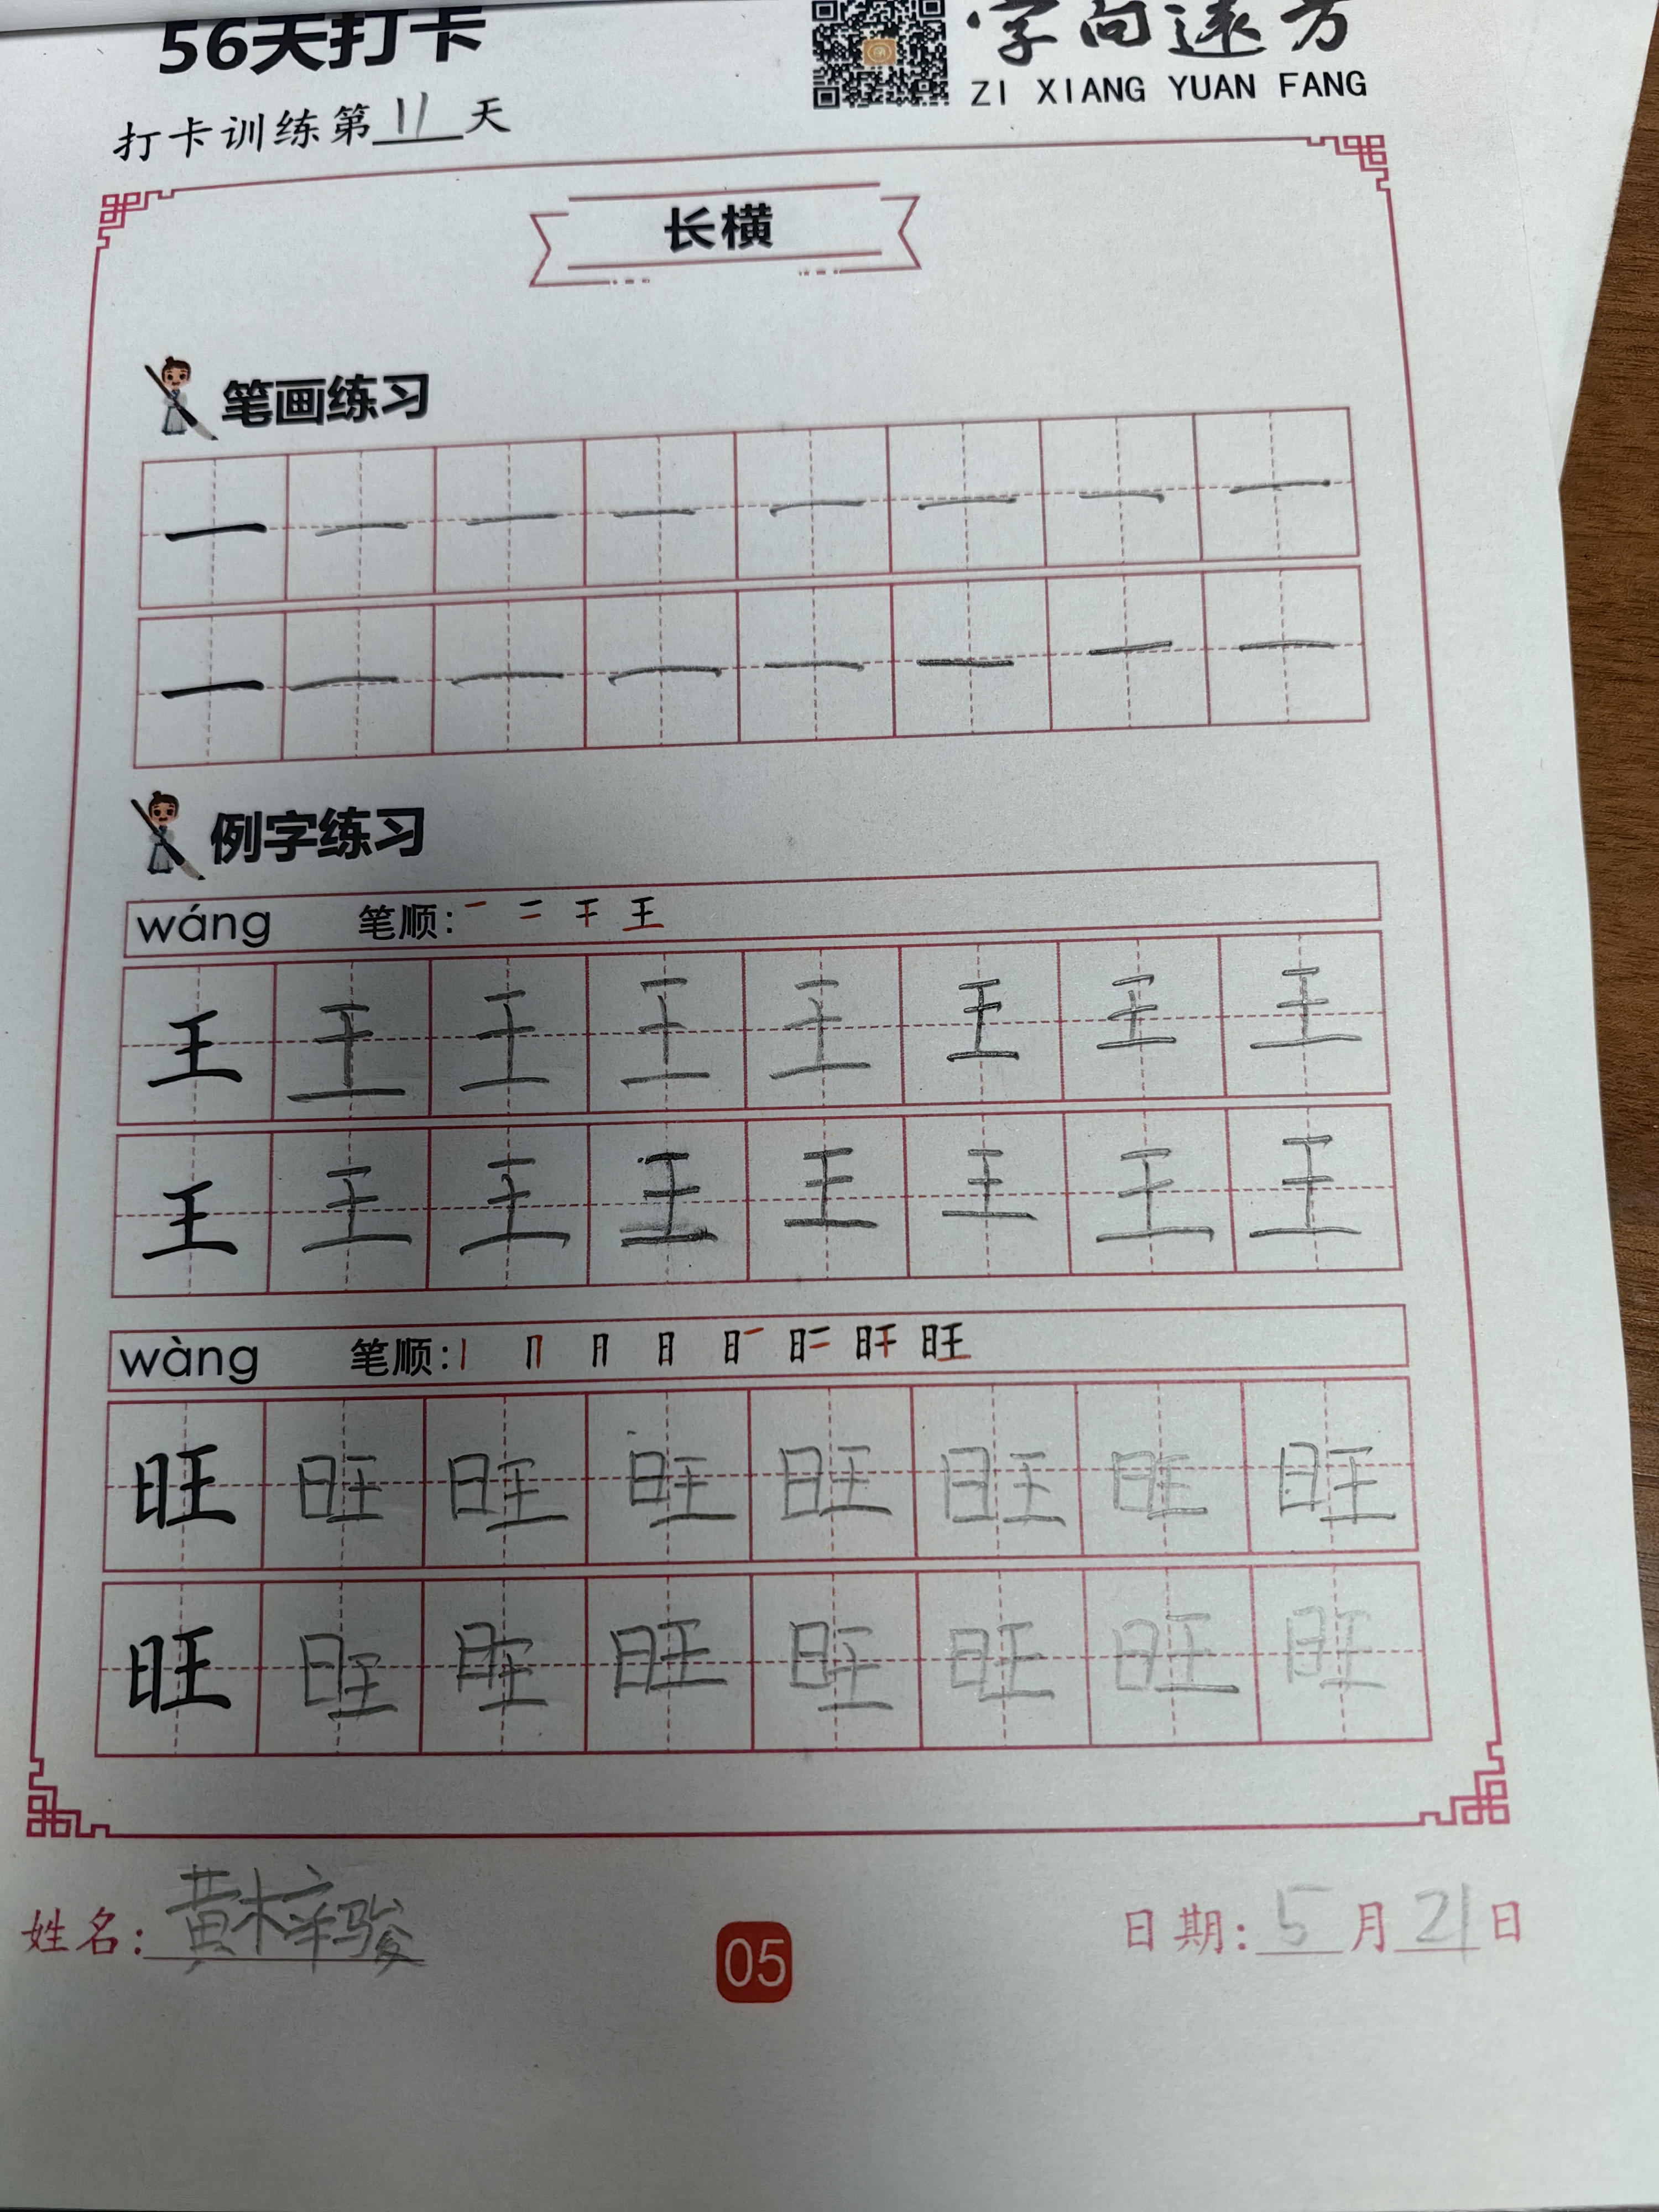 56天打卡
字向远方
ZI XIANG YUAN FANG
打卡训练第11天
长横
笔画练习
一 一 一 一 一 一 一 一
一 一 一 一 一 一 一 一
例字练习
wáng 笔顺: 一 二 干 王
王 王 王 王 王 王 王 王
王 王 王 王 王 王 王 王
wàng 笔顺: 丨 冂 月 日 旷 旷 旰 旺
旺 旺 旺 旺 旺 旺 旺 旺
旺 旺 旺 旺 旺 旺 旺 旺
姓名: 黄梓骏
05
日期: 5月21日